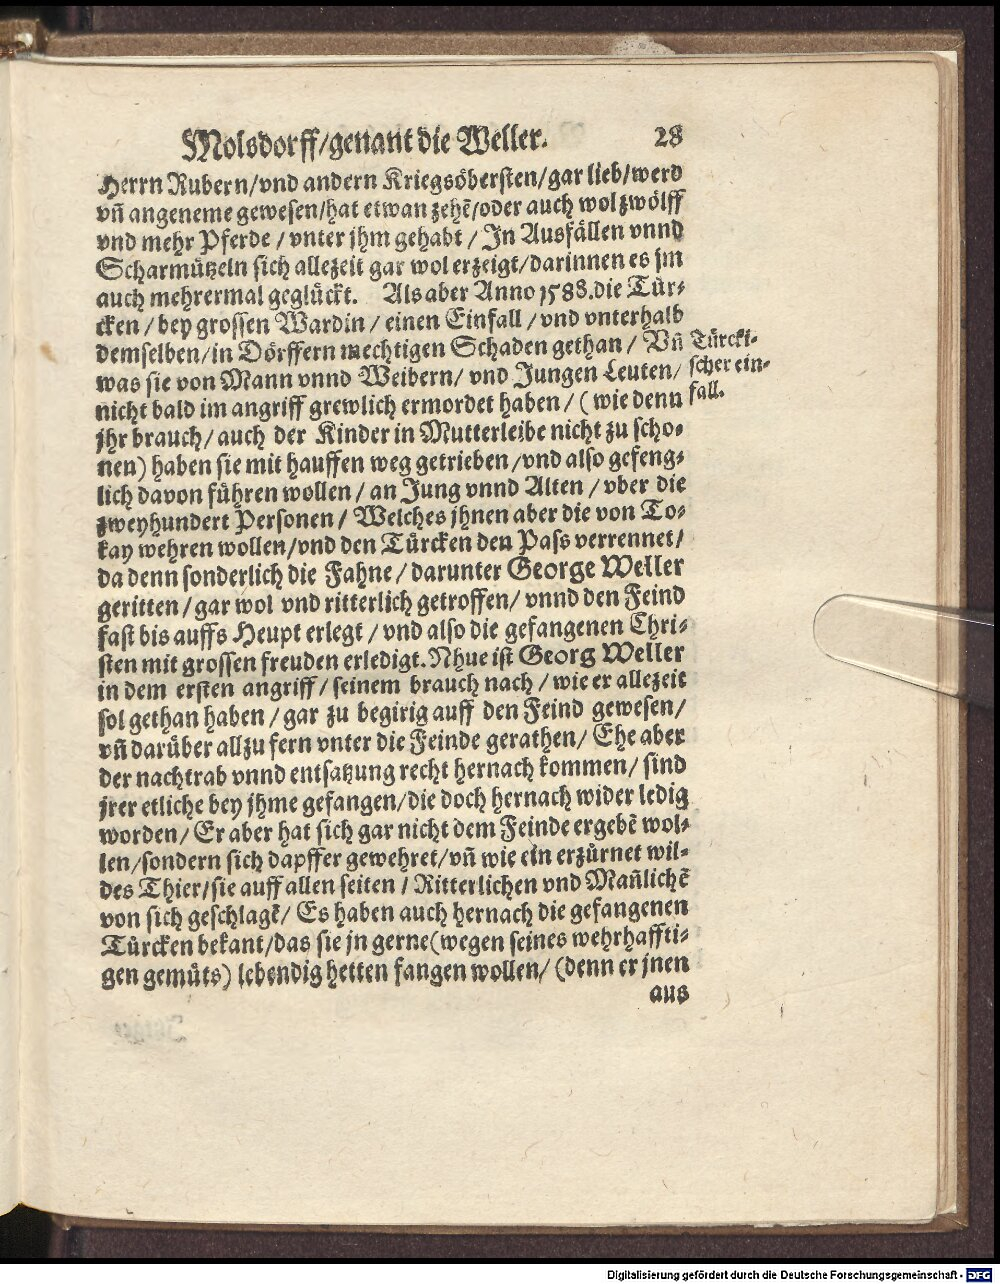 Molsdorff/genant die Weller. 28
Herrn Rubern/vnd andern Kriegsöbersten/gar lieb/werd
vn̄ angeneme gewesen/hat etwan zehē/oder auch wol zwölff
vnd mehr Pferde / vnter jhm gehabt / In Ausfällen vnnd
Scharmützeln sich allezeit gar wol erzeigt/darinnen es jm
auch mehrermal geglückt. Als aber Anno 1588. die Tür-
cken / bey grossen Wardin / einen Einfall / vnd vnterhalb
demselben/in Dörffern mechtigen Schaden gethan / Vn̄
was sie von Mann vnnd Weibern/ vnd Jungen Leuten/
nicht bald im angriff grewlich ermordet haben / ( wie denn
jhr brauch/ auch der Kinder in Mutterleibe nicht zu scho-
nen) haben sie mit hauffen weg getrieben /vnd also gefeng-
lich davon führen wollen / an Jung vnnd Alten / vber die
zweyhundert Personen / Welches jhnen aber die von To-
kay wehren wollen/vnd den Türcken den Pass verrennet/
da denn sonderlich die Fahne / darunter George Weller
geritten / gar wol vnd ritterlich getroffen/ vnnd den Feind
fast bis auffs Heupt erlegt / vnd also die gefangenen Chri-
sten mit grossen freuden erledigt. Nhue ist Georg Weller
in dem ersten angriff / seinem brauch nach / wie er allezeit
sol gethan haben / gar zu begirig auff den Feind gewesen/
vn̄ darüber allzu fern vnter die Feinde gerathen/ Ehe aber
der nachtrab vnnd entsatzung recht hernach kommen/ sind
jrer etliche bey jhme gefangen/die doch hernach wider ledig
worden/ Er aber hat sich gar nicht dem Feinde ergebē wol-
len/sondern sich dapffer gewehret/vn̄ wie ein erzürnet wil-
des Thier/sie auff allen seiten / Ritterlichen vnd Man̄lichē
von sich geschlagē/ Es haben auch hernach die gefangenen
Türcken bekant/das sie jn gerne(wegen seines wehrhaffti-
gen gemüts) lebendig hetten fangen wollen/ (denn er jnen
aus
Türcki-
scher ein-
fall.
Digitalisierung gefördert durch die Deutsche Forschungsgemeinschaft - DFG